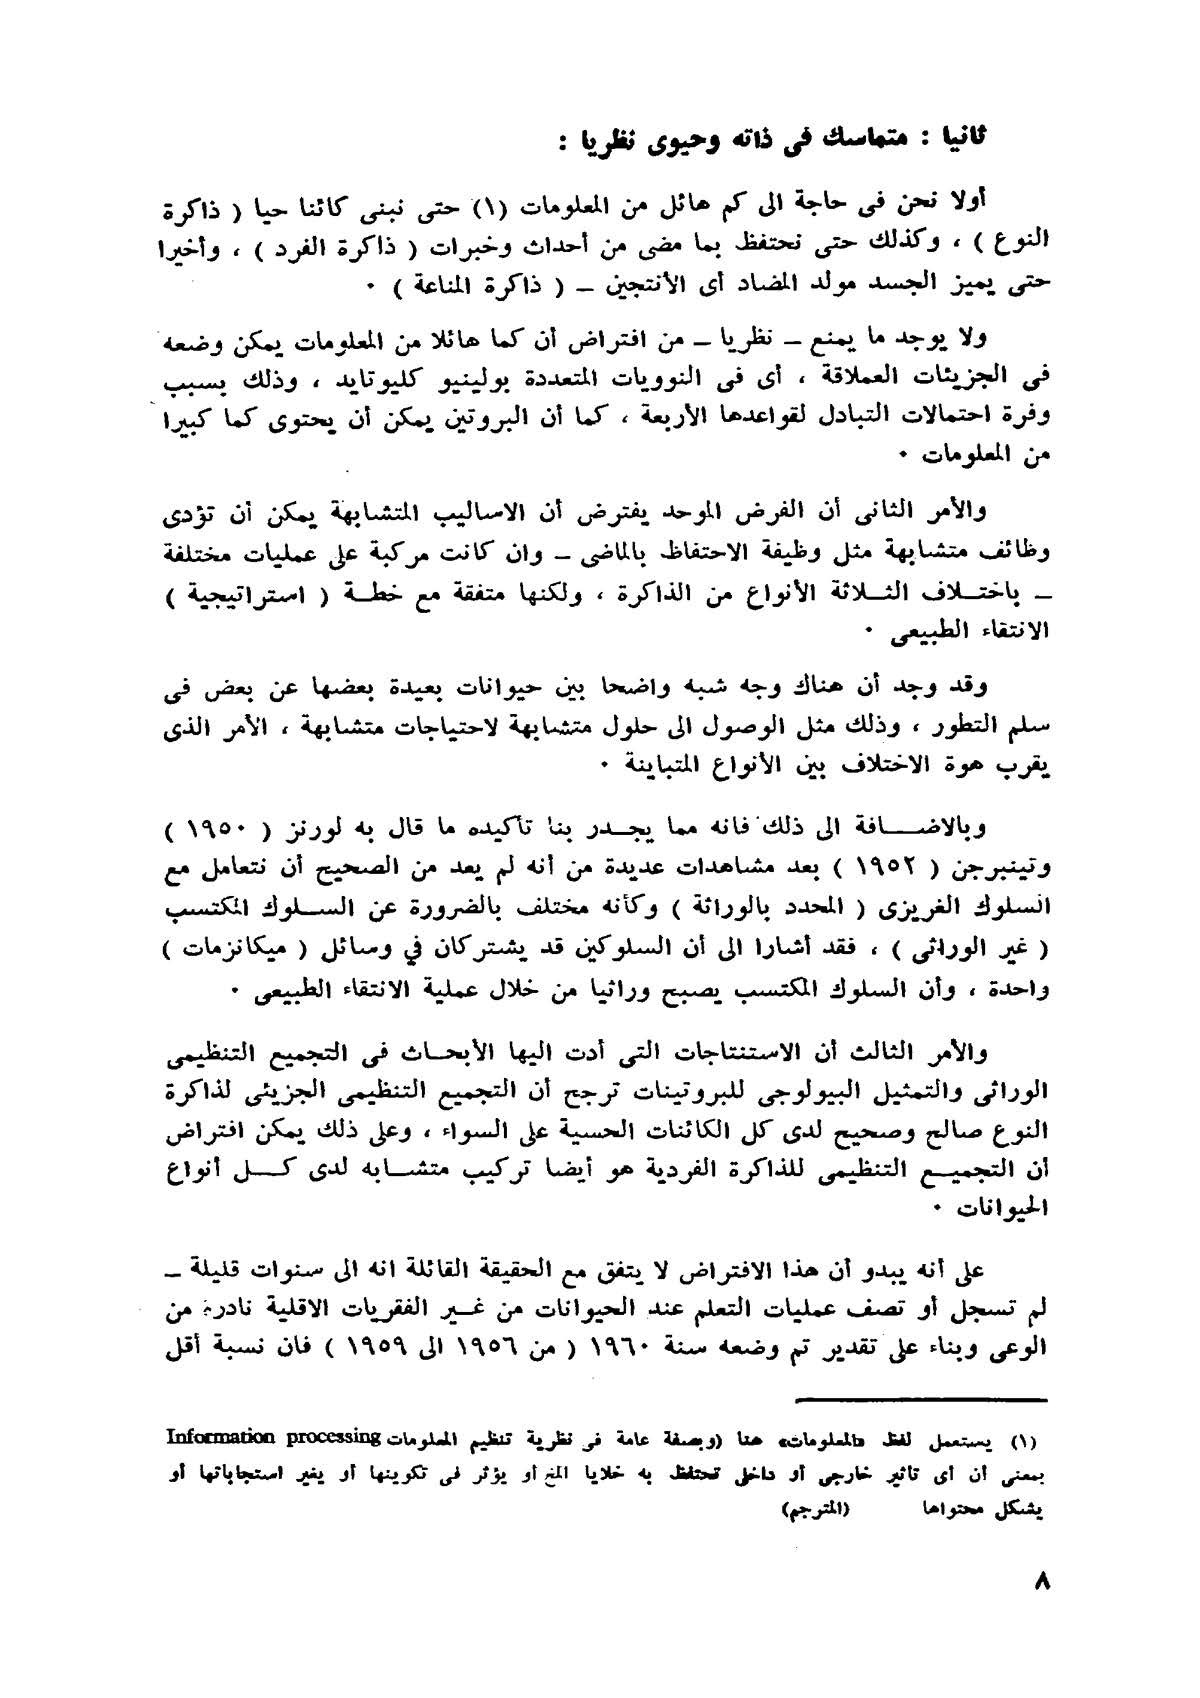 ثانيا : متماسك فى ذاته وحيوى نظريا :
أولا نحن فى حاجة الى كم هائل من المعلومات (١) حتى نبنى كائنا حيا ( ذاكرة
النوع ) ، وكذلك حتى نحتفظ بما مضى من أحداث وخبرات ( ذاكرة الفرد ) ، وأخيرا
حتى يميز الجسد مولد المضاد أى الأنتجين – ( ذاكرة المناعة ) ٠
ولا يوجد ما يمنع – نظريا – من افتراض أن كما هائلا من المعلومات يمكن وضعه
فى الجزيئات العملاقة ، أى فى النوويات المتعددة بولينيو كليوتايد ، وذلك بسبب
وفرة احتمالات التبادل لقواعدها الأربعة ، كما أن البروتين يمكن أن يحتوى كما كبيرا
من المعلومات ٠
والأمر الثانى أن الفرض الموحد يفترض أن الاساليب المتشابهة يمكن أن تؤدى
وظائف متشابهة مثل وظيفة الاحتفاظ بالماضى – وان كانت مركبة على عمليات مختلفة
– باختلاف الثلاثة الأنواع من الذاكرة ، ولكنها متفقة مع خطة ( استراتيجية )
الانتقاء الطبيعى ٠
وقد وجد أن هناك وجه شبه واضحا بين حيوانات بعيدة بعضها عن بعض فى
سلم التطور ، وذلك مثل الوصول الى حلول متشابهة لاحتياجات متشابهة ، الأمر الذى
يقرب هوة الاختلاف بين الأنواع المتباينة ٠
وبالاضافة الى ذلك فانه مما يجدر بنا تأكيده ما قال به لورنز ( ١٩٥٠ )
وتينبرجن ( ١٩٥٢ ) بعد مشاهدات عديدة من أنه لم يعد من الصحيح أن نتعامل مع
السلوك الغريزى ( المحدد بالوراثة ) وكأنه مختلف بالضرورة عن السلوك المكتسب
( غير الوراثى ) ، فقد أشارا الى أن السلوكين قد يشتركان في وسائل ( ميكانزمات )
واحدة ، وأن السلوك المكتسب يصبح وراثيا من خلال عملية الانتقاء الطبيعى ٠
والأمر الثالث أن الاستنتاجات التى أدت اليها الأبحاث فى التجميع التنظيمى
الوراثى والتمثيل البيولوجى للبروتينات ترجح أن التجميع التنظيمى الجزيئى لذاكرة
النوع صالح وصحيح لدى كل الكائنات الحسية على السواء ، وعلى ذلك يمكن افتراض
أن التجميع التنظيمى للذاكرة الفردية هو أيضا تركيب متشابه لدى كل أنواع
الحيوانات ٠
على أنه يبدو أن هذا الافتراض لا يتفق مع الحقيقة القائلة انه الى سنوات قليلة –
لم تسجل أو تصف عمليات التعلم عند الحيوانات من غير الفقريات الاقلية نادرة من
الوعى وبناء على تقدير تم وضعه سنة ١٩٦٠ ( من ١٩٥٦ الى ١٩٥٩ ) فان نسبة أقل
(١) يستعمل لفظ «المعلومات» هنا (وبصفة عامة فى نظرية تنظيم المعلومات Information processing
بمعنى أن أى تأثير خارجى أو داخلى تحتفظ به خلايا المخ أو يؤثر فى تكوينها أو يغير استجاباتها أو
يشكل محتواها (المترجم)
٨